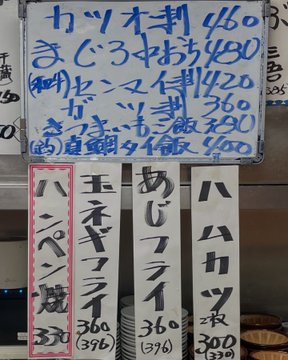 カツオ刺 460
まじろ中おち 480
(和牛)センマイ刺 420
ガツ刺 360
さつまいもご飯 380
(釣)真鯛タイ飯 400
ハムカツ
2枚
300
(330)
あじフライ
360
(396)
玉ネギフライ
360
(396)
ハンペン焼
330